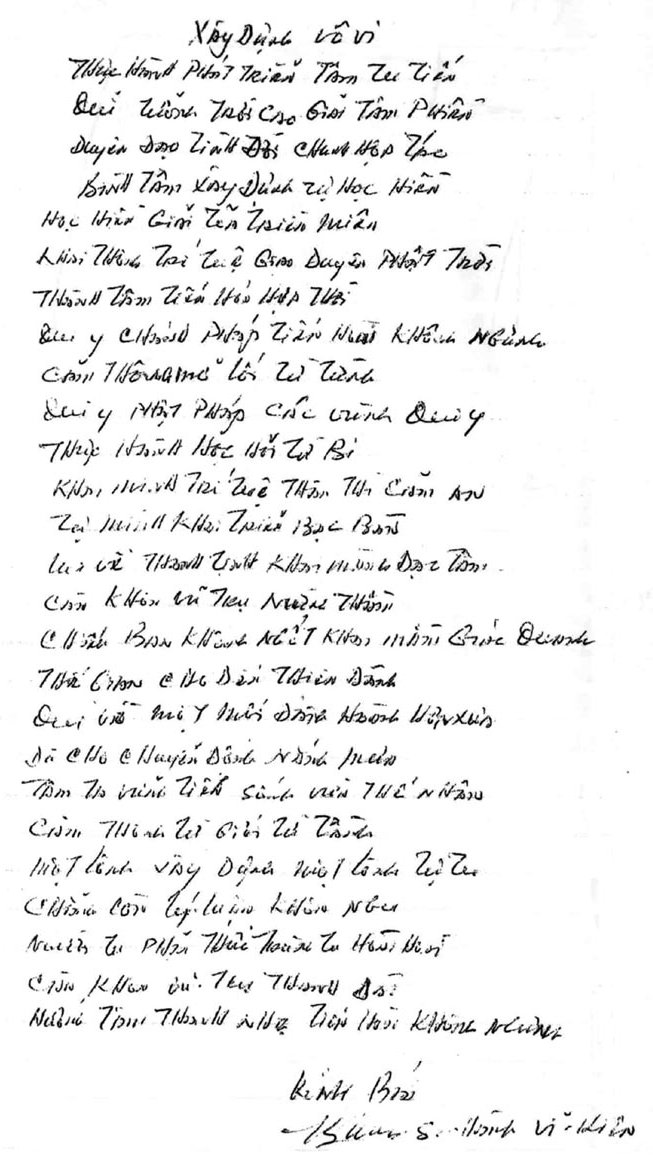 Xây Dựng Vô Vi
Thực Hành Phát Triển Tâm Tu Tiến
Quí Tưởng Trời Cao Giải Tâm Phiền
Duyên Đạo Tình Đời Chung Hợp Tác
Bình Tâm Xây Dựng Tự Học Hiền
Học Hiền Giải Tiến Triền Miên
Khai Thông Trí Tuệ Giao Duyên Phật Trời
Thành Tâm Tiến Hóa Hợp Thời
Qui y Chánh Pháp Tiến Hoài Không Ngừng
Cảm Thông Mở Lối Từ Từng
Qui y Phật Pháp Các Vùng Qui y
Thực Hành Học Hỏi Từ Bi
Khai Minh Trí Tuệ Thân Thì Cảm An
Tự Mình Khai Triển Bạc Bàn
Lui Về Thanh Tịnh Khai Màng Đạt Tâm
Càn Khôn Vũ Trụ Nguyên Thâm
Chính Ban Không Ngớt Khai Mầm Quanh
Thế Gian Cho Đến Thiên Đàng
Qui Về Một Mối Đàng Hoàng
Đi Cho Chuyển Bánh
Tâm Tu Vững Tiến Sánh Vui Thế Nhân
Cảm Thông Từ Giới Từ Tầng
Một Lòng Xây Dựng Một Lòng Tự Tu
Chẳng Còn Lý Luận Khôn Ngu
Người Tu Phải Thức Tu Hoài Hoài
Càn Khôn Vũ Trụ Thanh Đài
Hướng Tâm Thanh Nhẹ Tiến Hoài Không Ngừng
Kính Bái
Vĩ Kiên